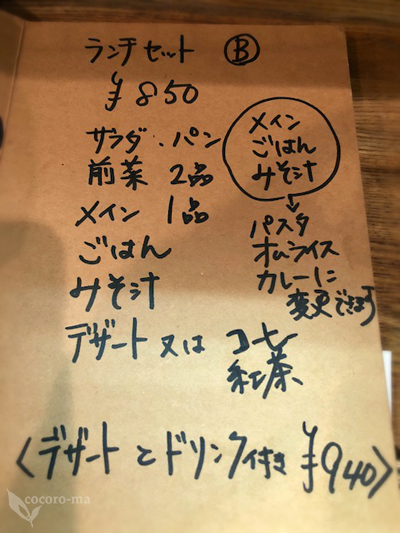 ランチセット Ⓑ
¥850
サラダ、パン
前菜 2品
メイン 1品
ごはん
みそ汁
メイン
ごはん
みそ汁
↓
パスタ
オムライス
カレーに
変更できます
デザート又は コーヒー
紅茶
<デザートとドリンク付き ¥940>
cocoro-ma